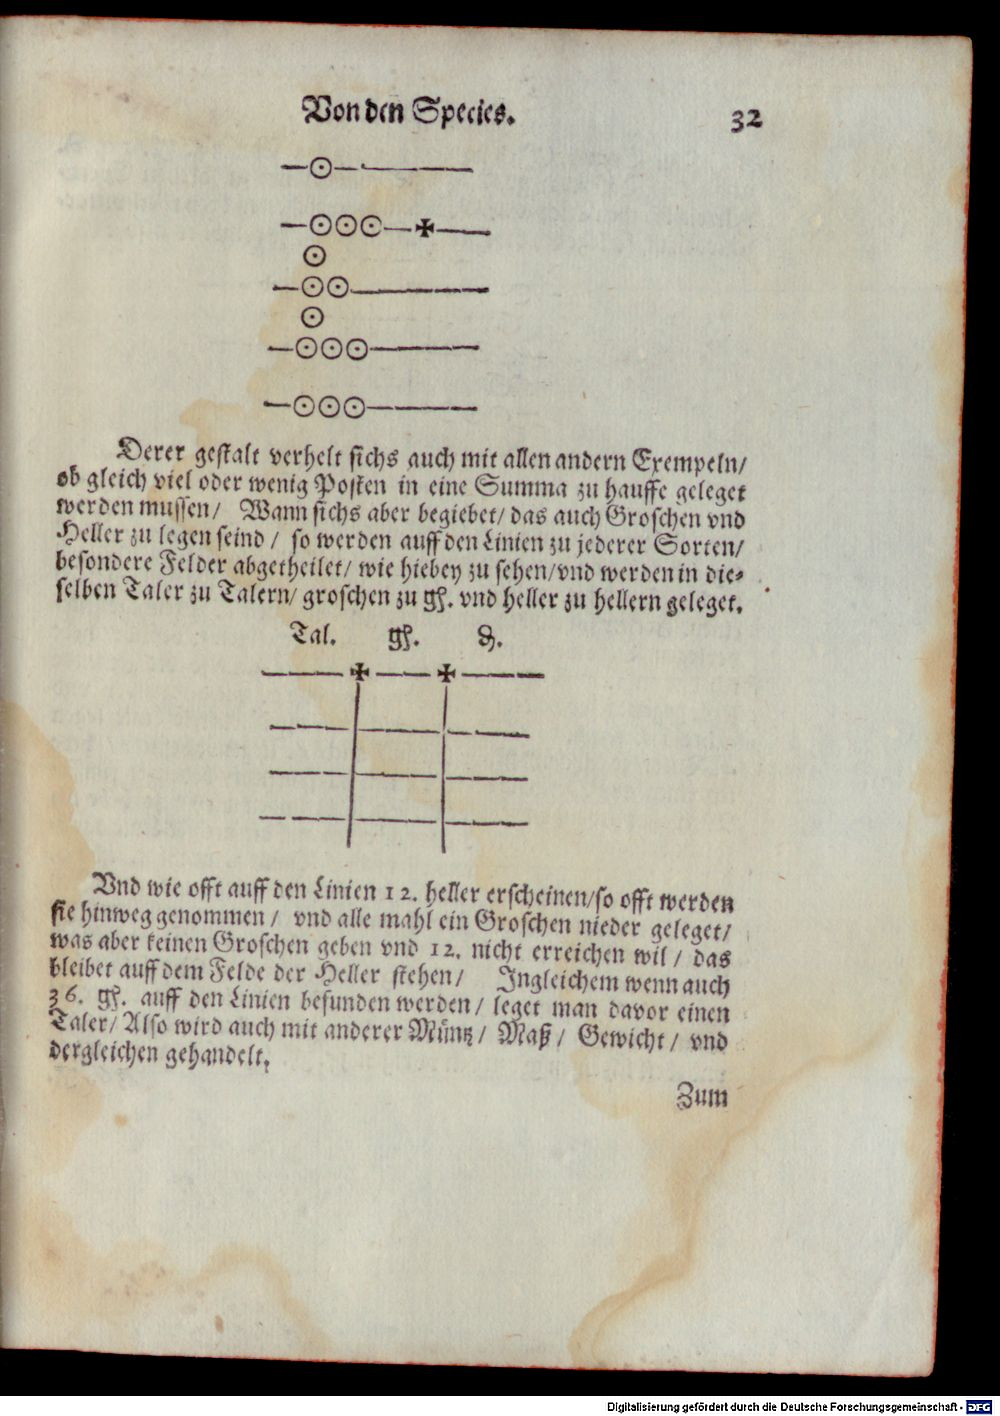 Von den Species.
32
Derer gestalt verhelt sichs auch mit allen andern Exempeln/
ob gleich viel oder wenig Posten in eine Summa zu hauffe geleget
werden mussen/ Wann sichs aber begiebet/ das auch Groschen vnd
Heller zu legen seind / so werden auff den Linien zu jederer Sorten/
besondere Felder abgetheilet/ wie hiebey zu sehen/ vnd werden in die-
selben Taler zu Talern/ groschen zu gß. vnd heller zu hellern geleget.
Tal. gß. ₰.
Vnd wie offt auff den Linien 12. heller erscheinen/ so offt werden
sie hinweg genommen / vnd alle mahl ein Groschen nieder geleget/
was aber keinen Groschen geben vnd 12. nicht erreichen wil / das
bleibet auff dem Felde der Heller stehen/ Ingleichem wenn auch
36. gß. auff den Linien befunden werden / leget man davor einen
Taler/ Also wird auch mit anderer Müntz / Maß / Gewicht / vnd
dergleichen gehandelt.
Zum
Digitalisierung gefördert durch die Deutsche Forschungsgemeinschaft - DFG